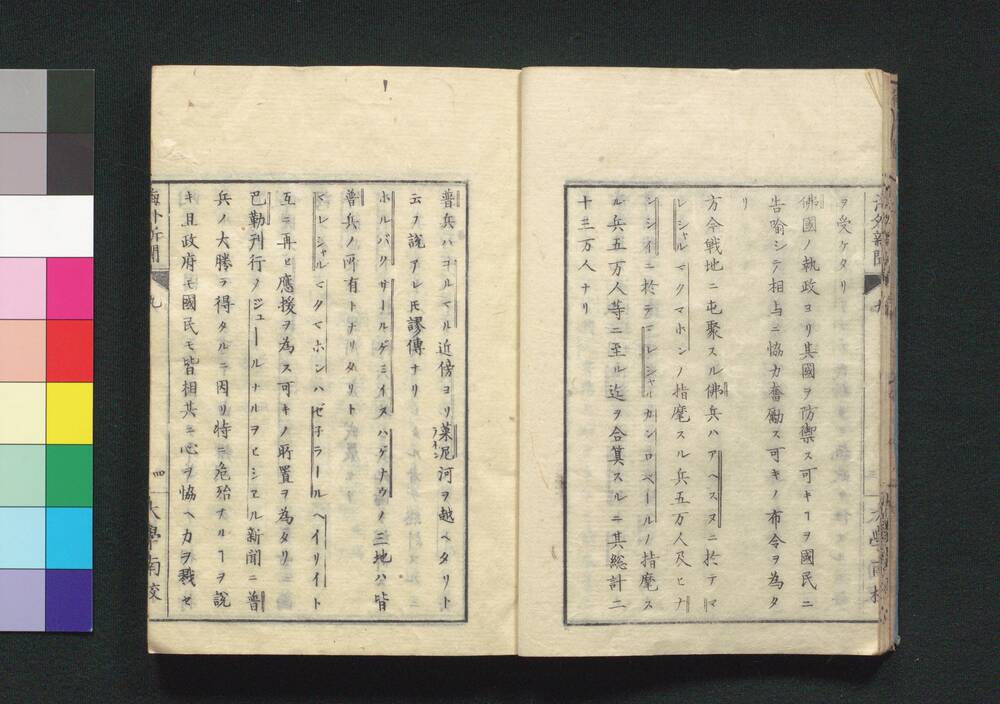 ヲ受ケタリ
佛國ノ執政ヨリ其國ヲ防禦ス可キヿヲ國民ニ
告喩シテ相与ニ協力奮勵ス可キノ布令ヲ為タ
リ
方今戦地ニ屯聚スル佛兵ハアヘスヌニ於テマ
レシャルマクマホンノ指麾スル兵五万人及ヒナ
ンシイニ於テマレシャルカンロベールノ指麾ス
ル兵五万人等ニ至ル迄ヲ合算スルニ其総計二
十三万人ナリ
普兵ハコルマル近傍ヨリ莱尼河ヲ越ヘタリト
ライン
云フ説アレ𪜈謬傳ナリ
ホルバクサールゲミイスハゲナウノ三地ハ皆
普兵ノ所有トナリタリト
マレシャルマクマホンハゼ子ラールヘイリイト
互ニ再ヒ應援ヲ為ス可キノ所置ヲ為タリ
巴勒刊行ノジュールナルヲヒシエル新聞ニ普
兵ノ大勝ヲ得タルニ因リ特ニ危殆ナルヿヲ説
キ且政府モ國民モ皆相共ニ心ヲ協ヘカヲ戮セ
海外新聞
九
四
大學南校